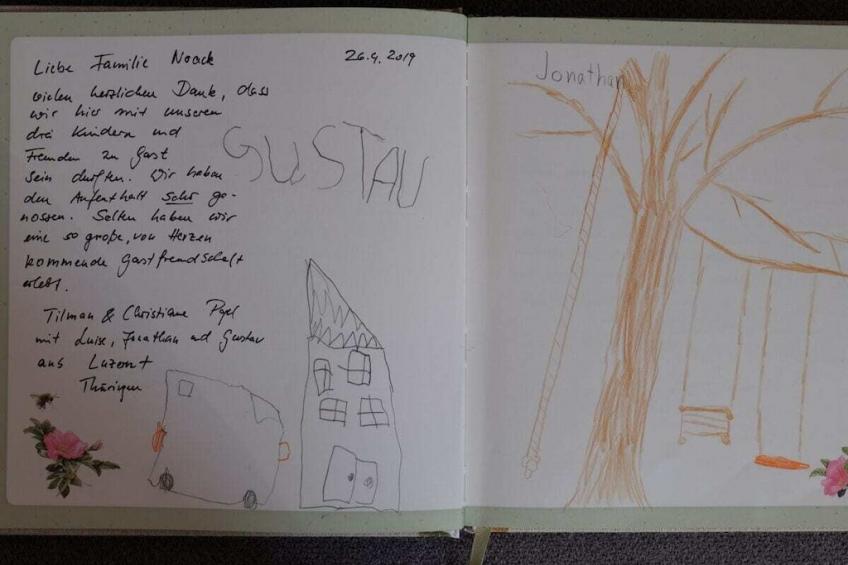 Liebe Familie Noack
26.4.2019
vielen herzlichen Dank, dass
wir hier mit unseren
drei Kindern und
Freunden zu Gast
sein durften. Wir haben
den Aufenthalt sehr ge-
nossen. Selten haben wir
eine so große, von Herzen
kommende Gastfreundschaft
erlebt.
Tilman & Christiane
mit Luise, Jonathan und Gustav
aus
Thüringen
GUSTAV
Jonathan